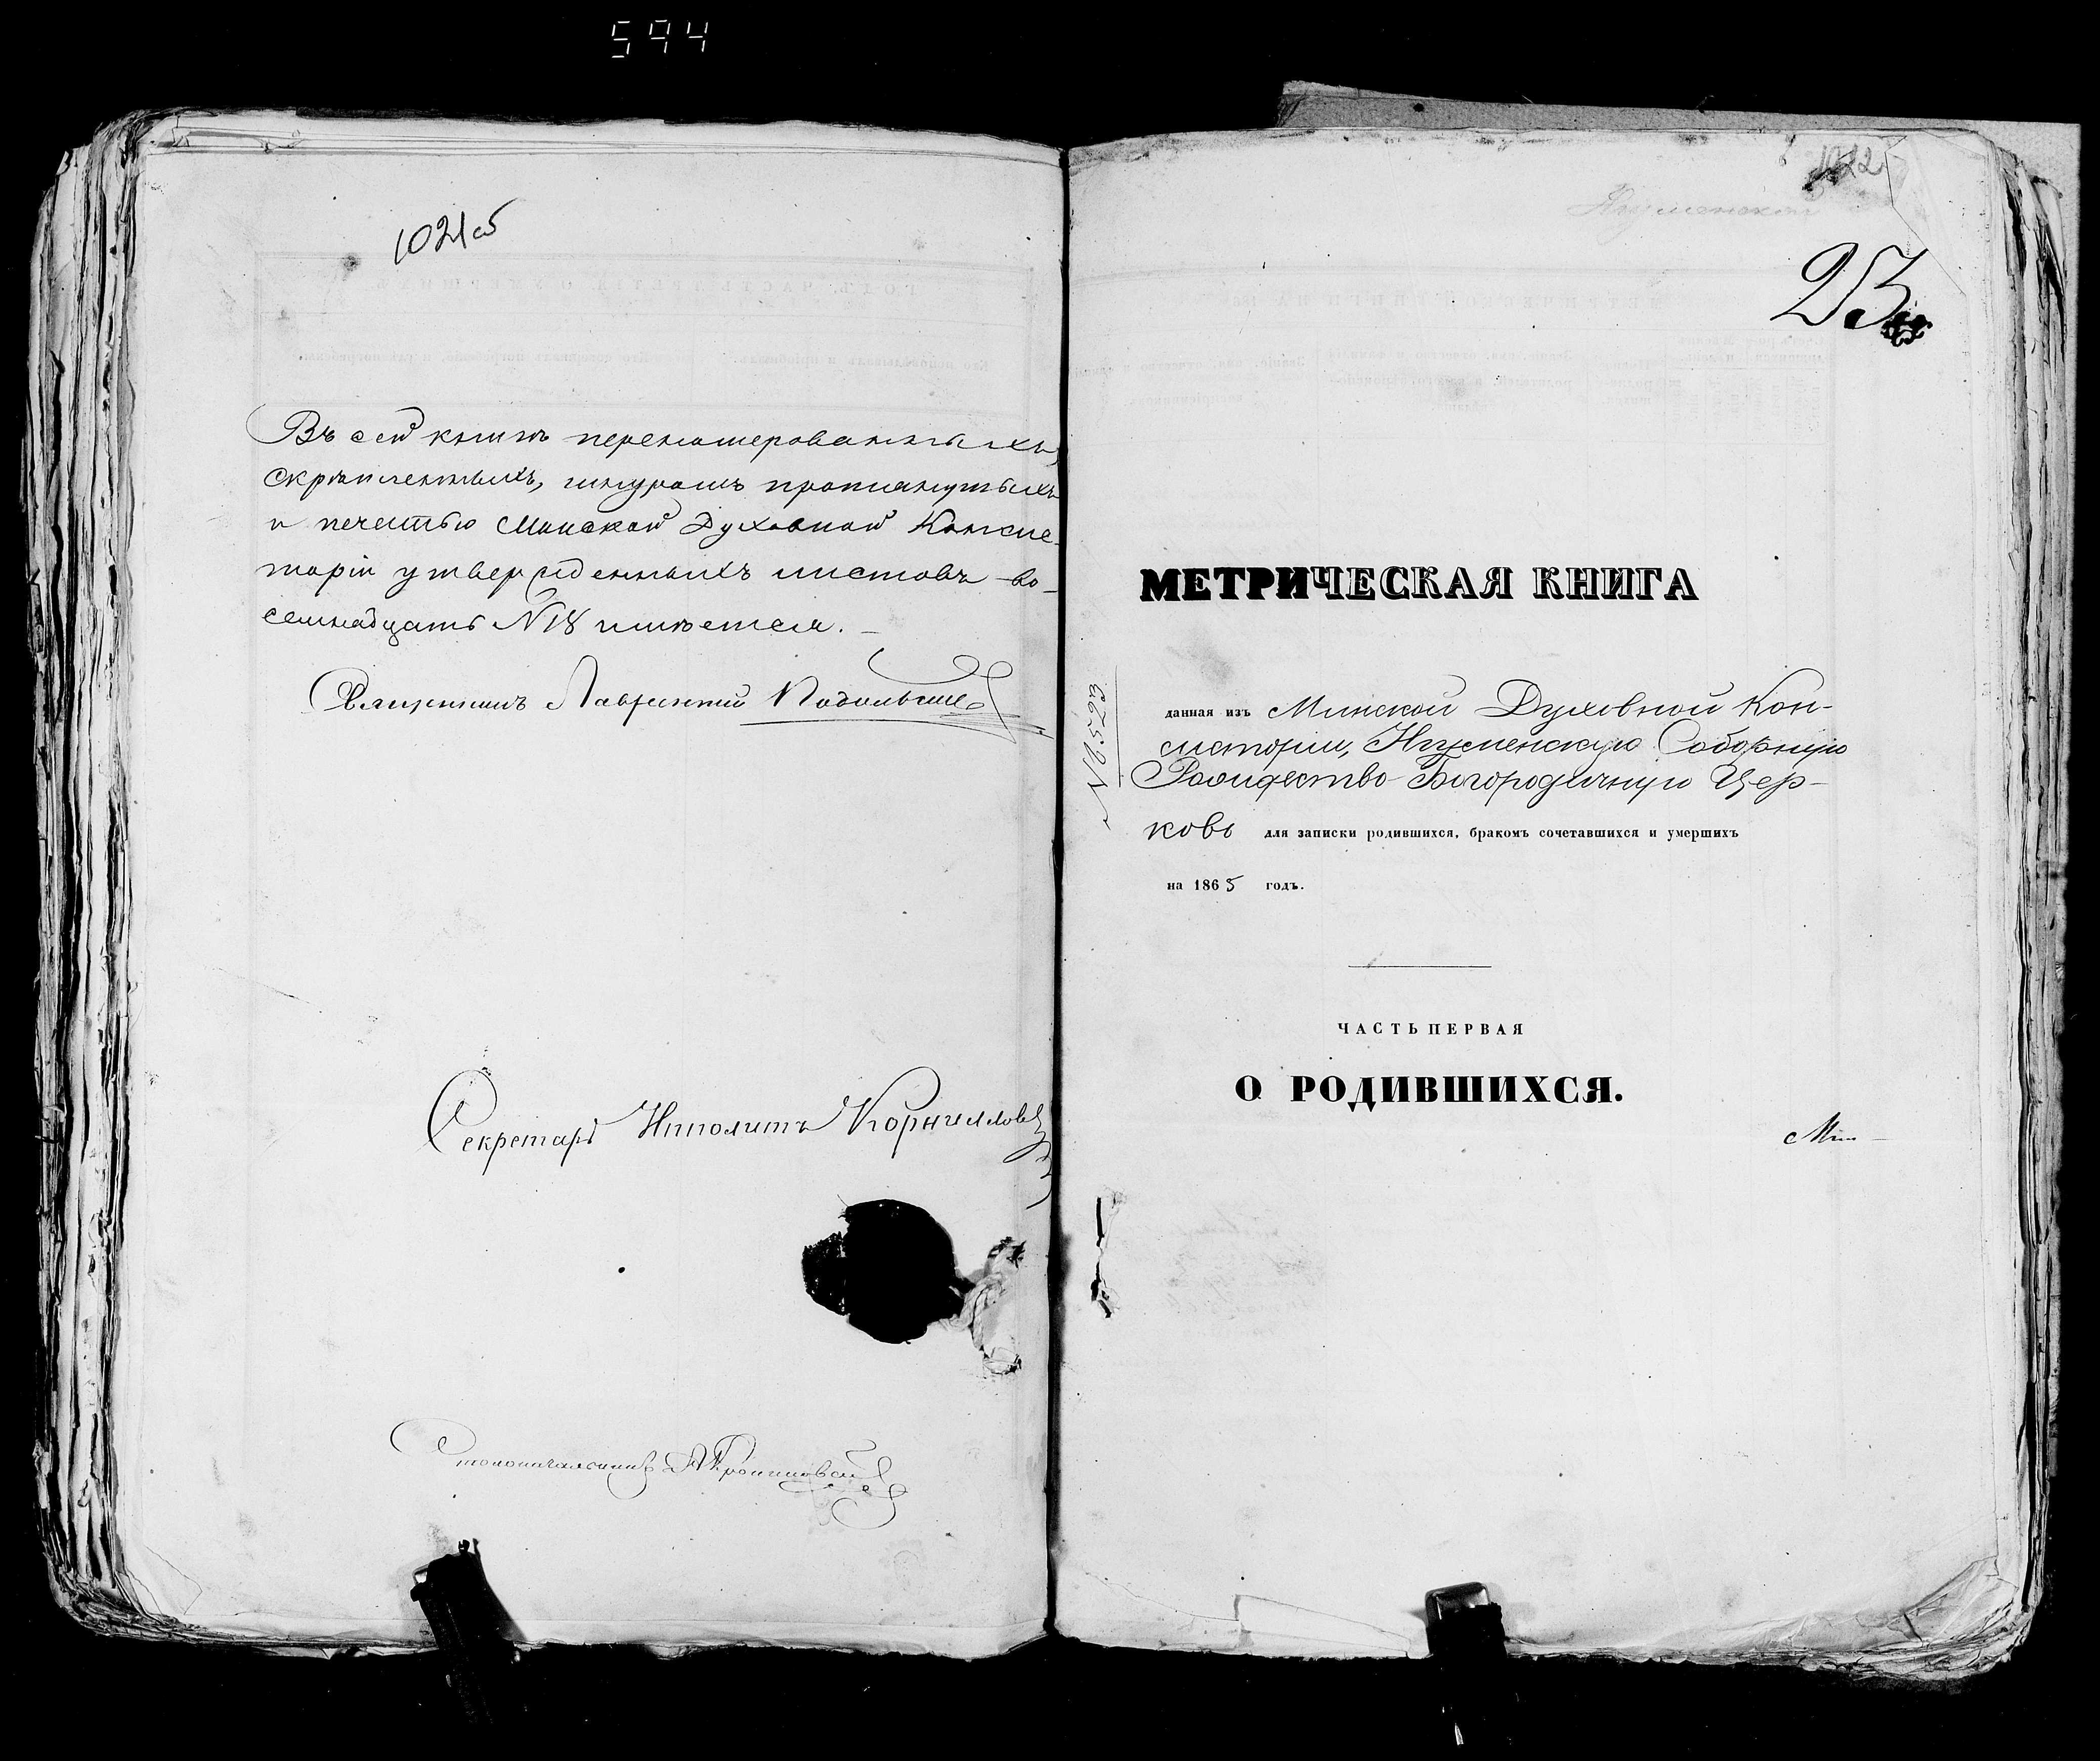 594
1021об
Въ сей книгѣ перенумерованныхъ,
скрѣпленныхъ, шнуромъ протянутыхъ
и печатью Минской Духовной Консис-
торіи утвержденныхъ листовъ во-
семнадцать №18 имѣется.
Священникъ Лаврентій
Секретарь Ипполитъ
Столоначальникъ
1022
Игуменской
23
МЕТРИЧЕСКАЯ КНИГА
№ 8.523
данная изъ Минской Духовной Кон-
систоріи, Игуменскую Соборную
Рождество-Богородичную Цер-
ковь для записки родившихся, бракомъ сочетавшихся и умершихъ
на 1865 годъ.
ЧАСТЬ ПЕРВАЯ
О РОДИВШИХСЯ.